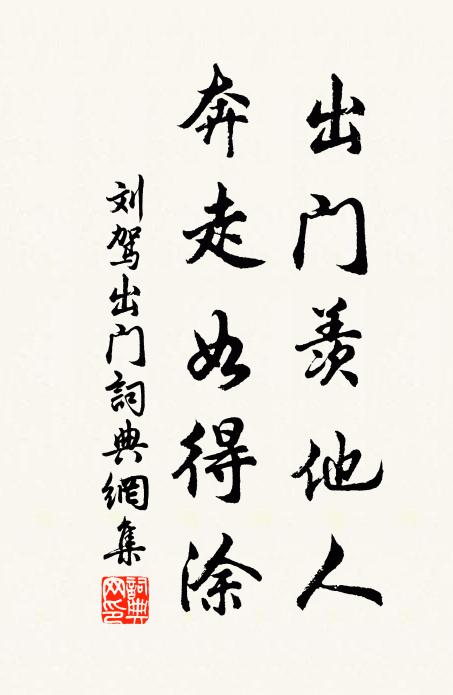 出门羡他人
奔走如得涂
刘驾出门詞典網集
詞典
网印